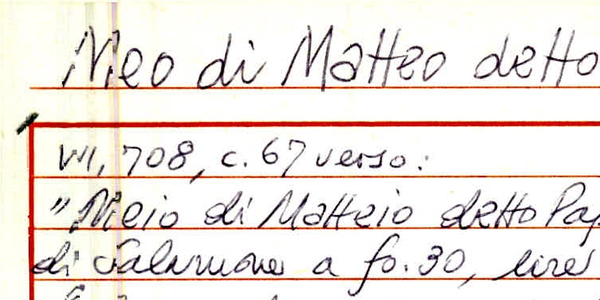 Meo di Matteo detto
VII, 708, c. 67 verso:
"Meio di Matteio detto Pap
di a fo. 30, lire